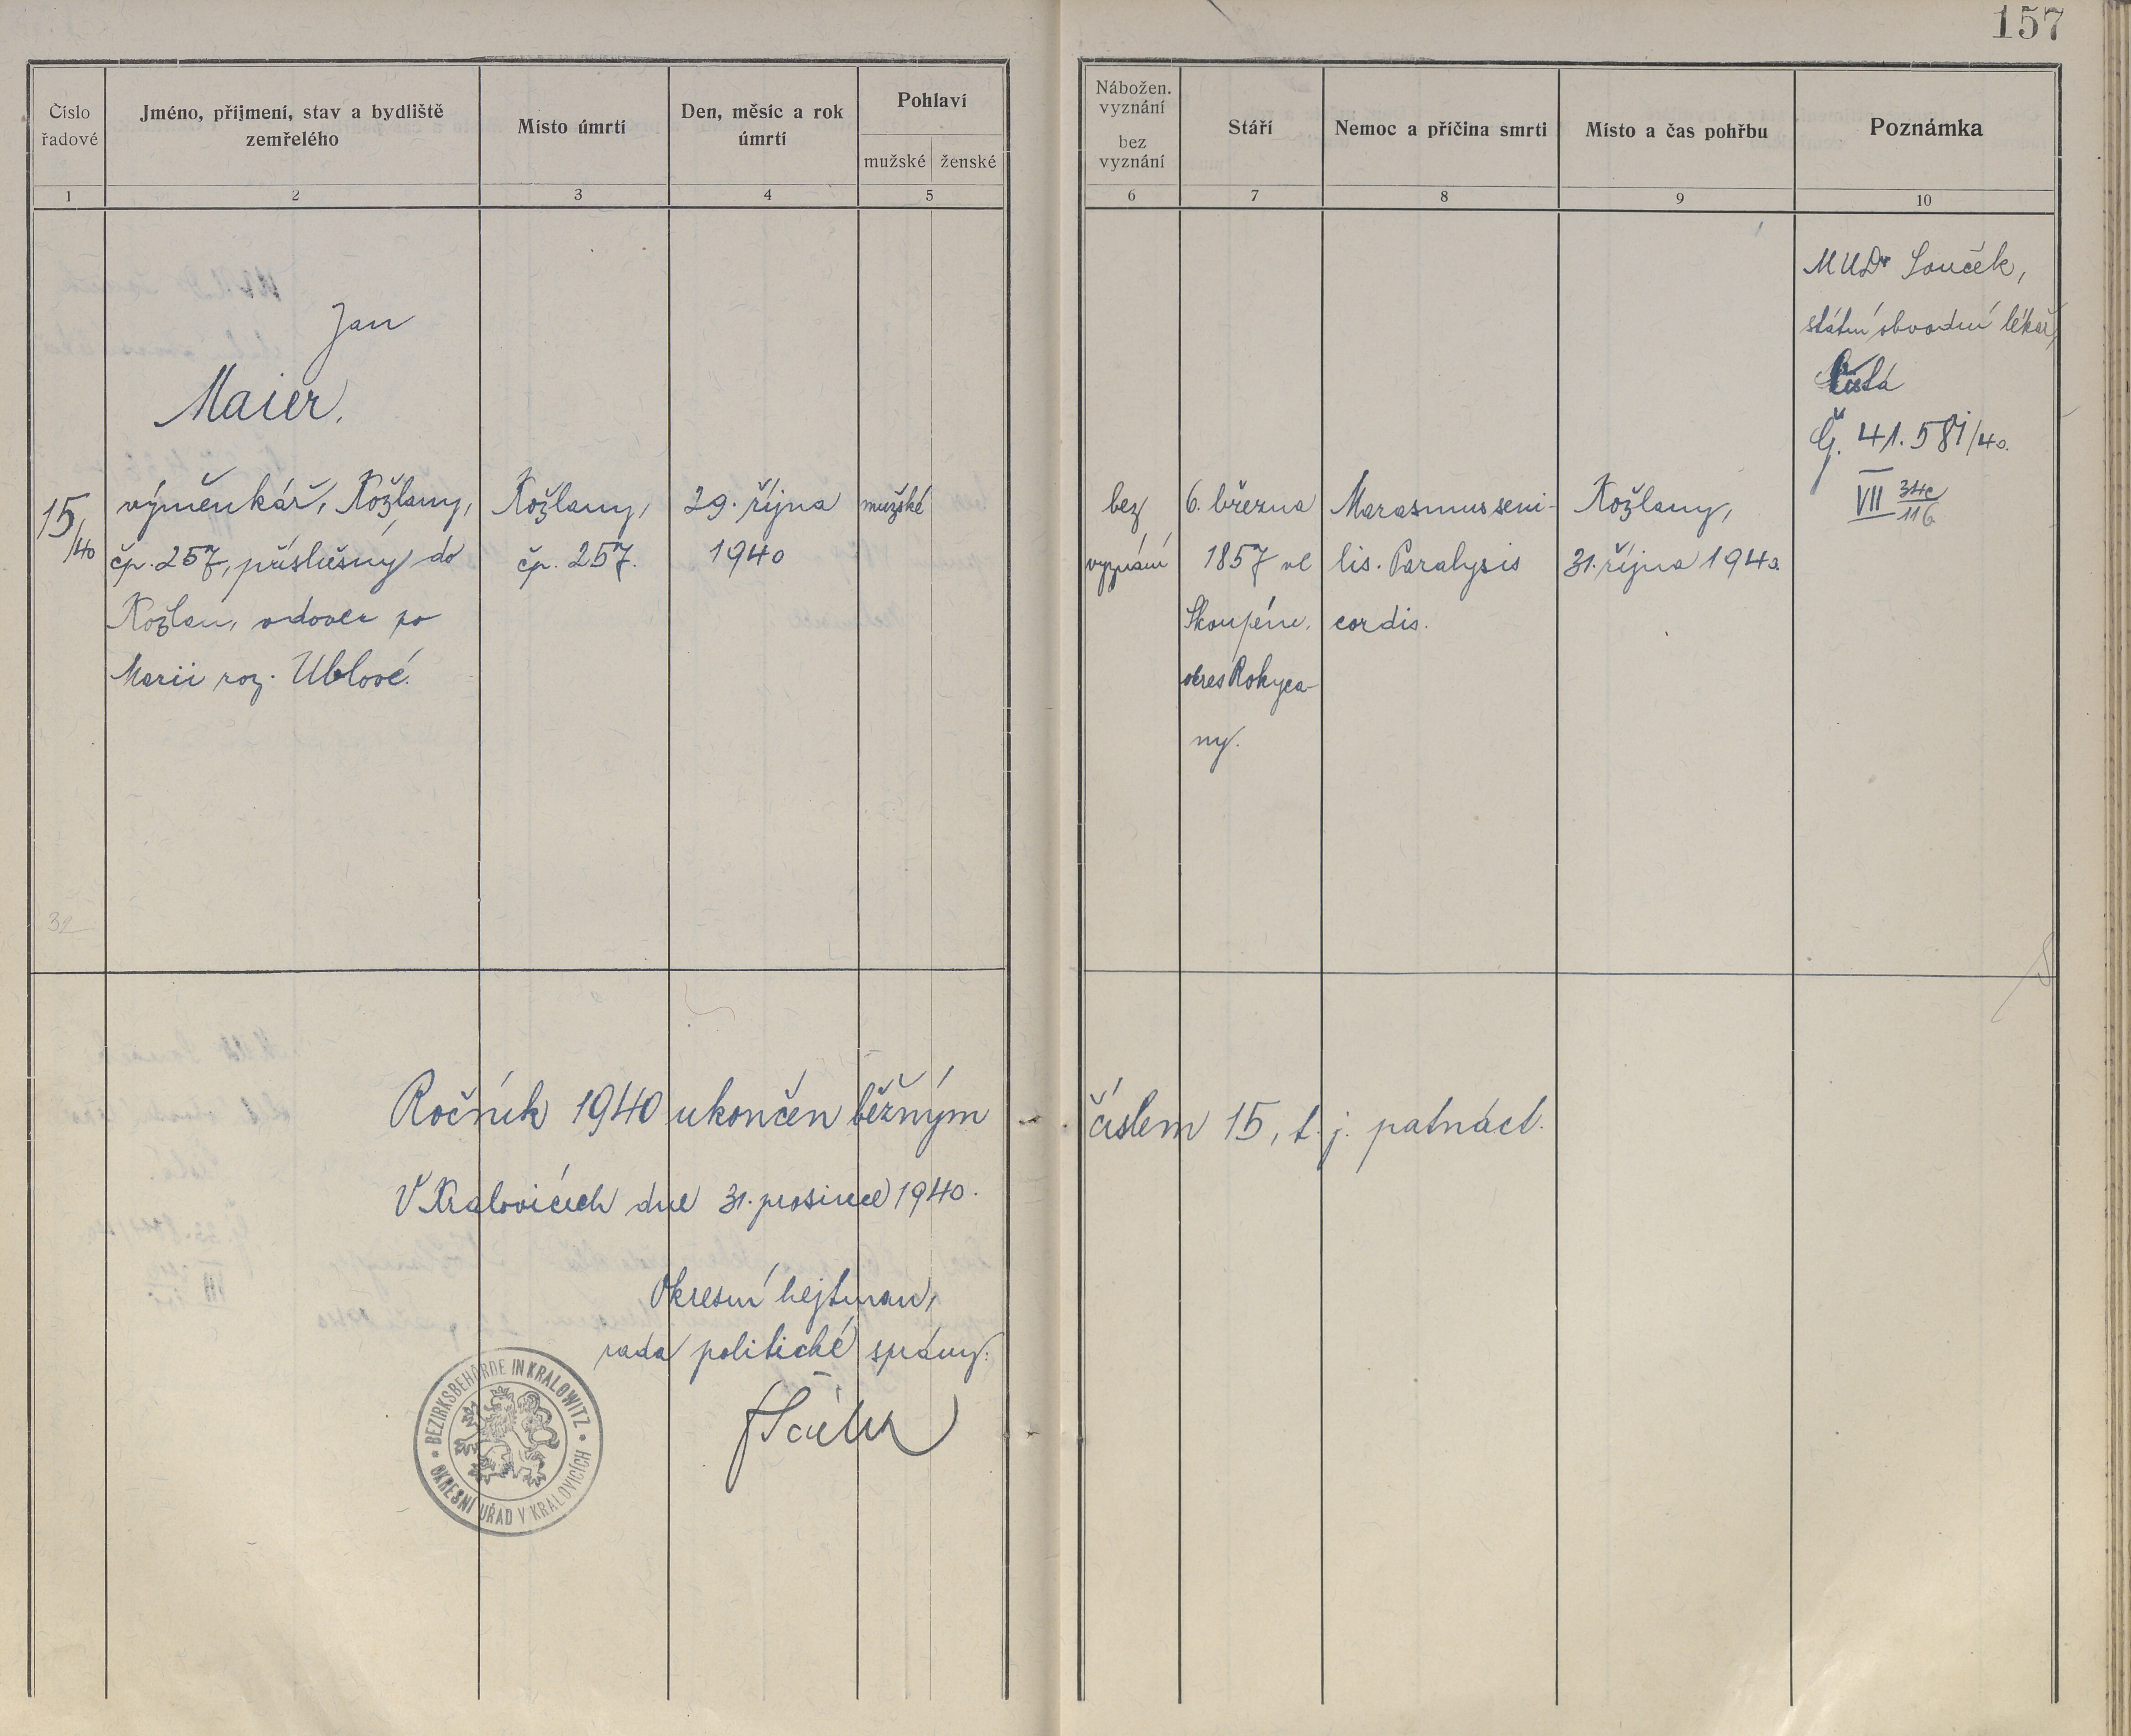 157
Číslo
řadové
Jméno, příjmení, stav a bydliště
zemřelého
Místo úmrtí
Den, měsíc a rok
úmrtí
Pohlaví
mužské
ženské
Nábožen.
vyznání
bez
vyznání
Stáří
Nemoc a příčina smrti
Místo a čas pohřbu
Poznámka
1
2
3
4
5
6
7
8
9
10
15/40
Jan
Maier,
výměnkář, Kožlany,
čp. 257, příslušný do
Kožlan, vdovec po
Marii roz. Ublové.
Kožlany,
čp. 257.
29. října
1940
mužské
bez
vyznání
6. března
1857 ve
Skoupém,
okres Rokyca-
ny.
Marasmus seni-
lis. Paralysis
cordis.
Kožlany,
31. října 1940.
MUDr Souček,
státní obvodní lékař,
Čistá
Čj. 41.581/40.
VII 34c/116
32
Ročník 1940 ukončen běžným číslem 15, t. j. patnáct.
V Kralovicích dne 31. prosince 1940.
Okresní hejtman,
rada politické správy:
BEZIRKSBEHÖRDE IN KRALOWITZ
OKRESNÍ ÚŘAD V KRALOVICÍCH